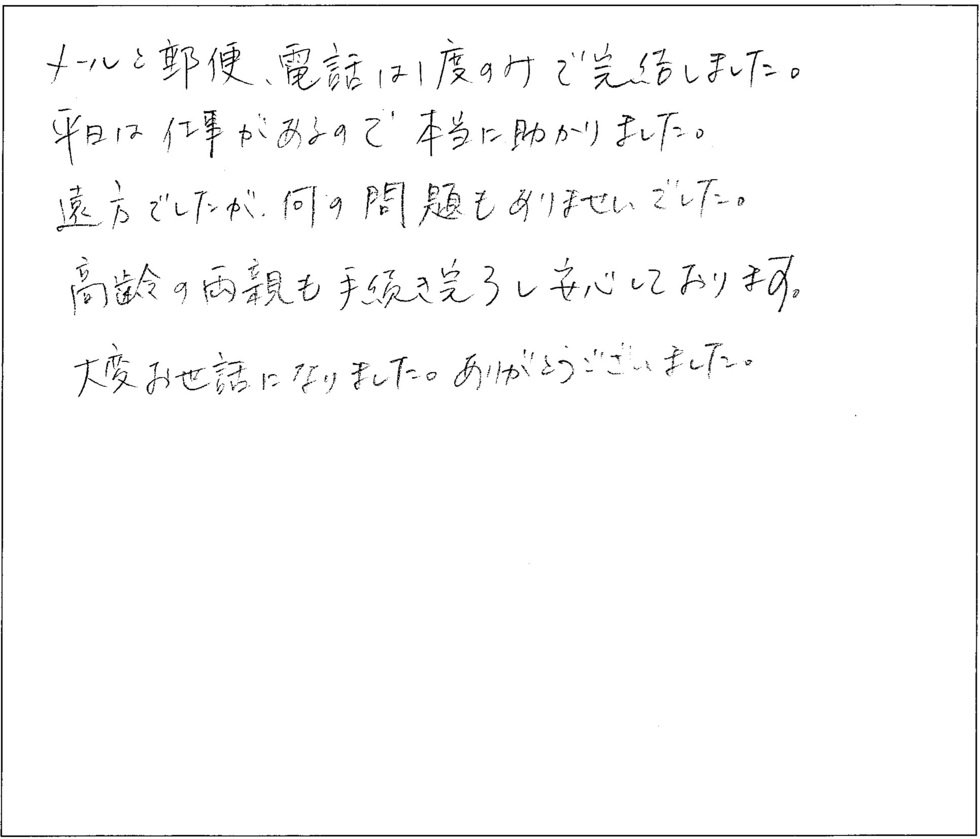 メールと郵便、電話は1度のみで完結しました。
平日は仕事があるので本当に助かりました。
遠方でしたが、何の問題もありませんでした。
高齢の両親も手続き完了し安心しております。
大変お世話になりました。ありがとうございました。